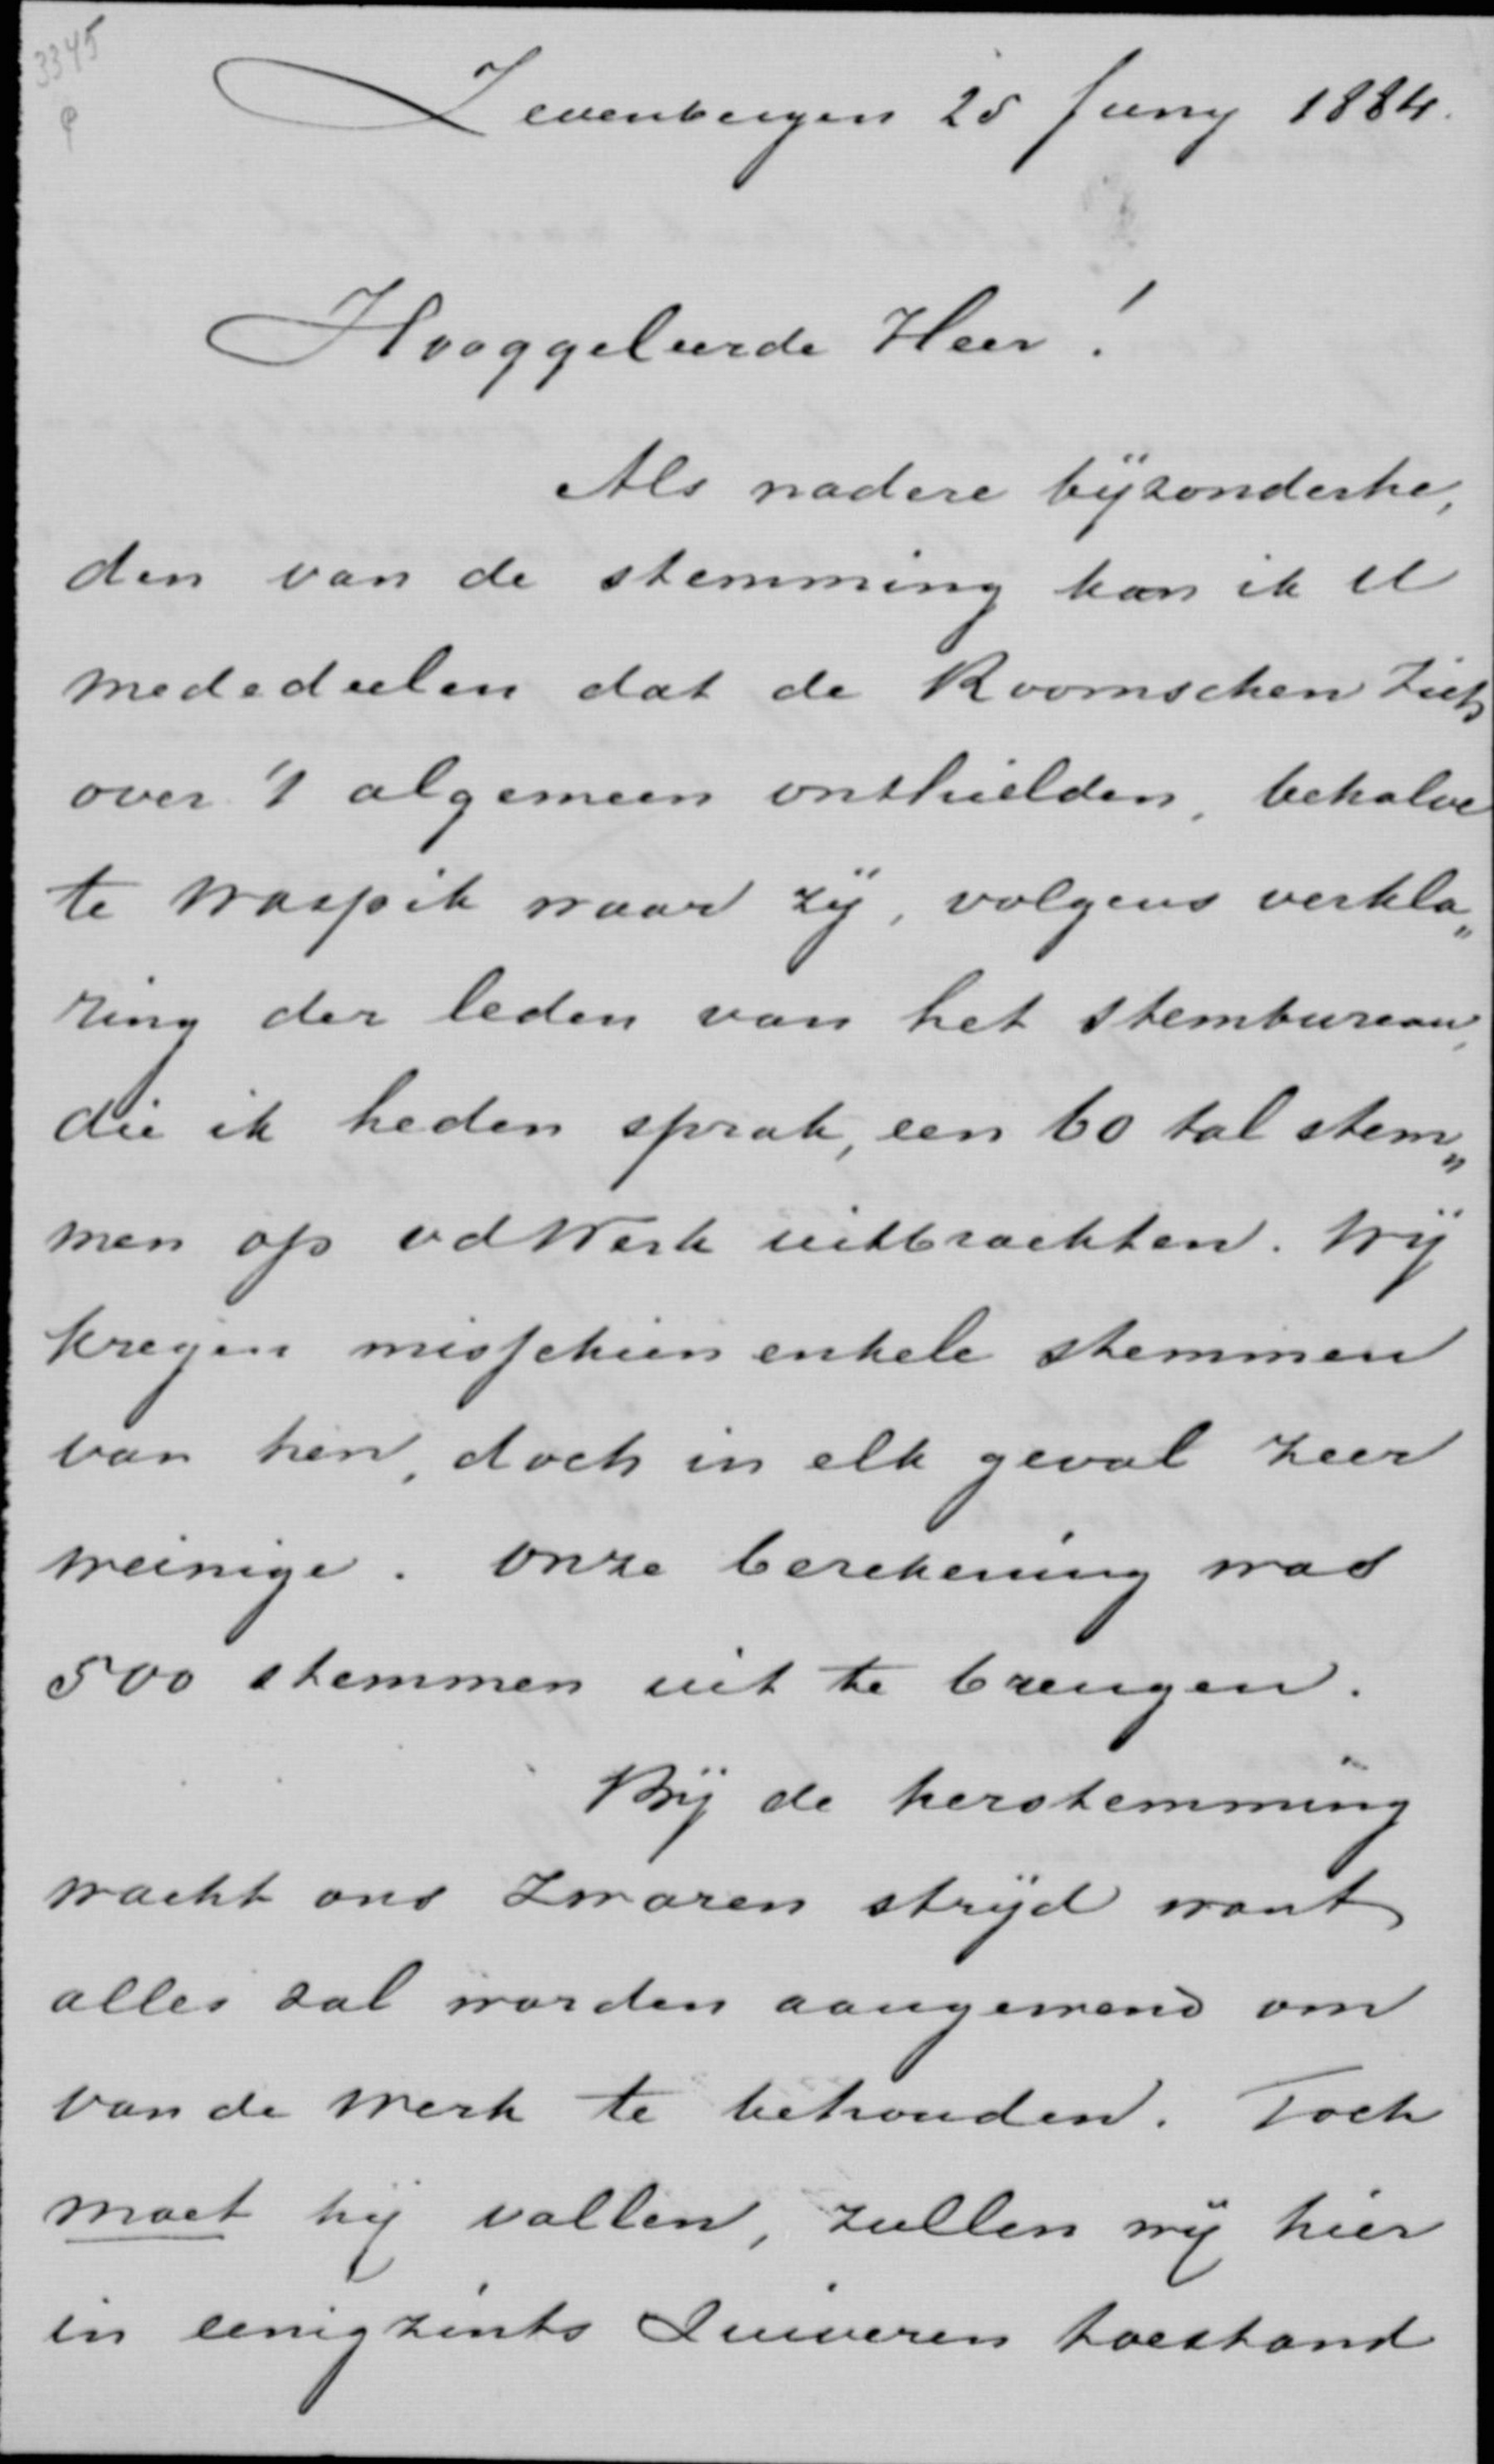 3345
Zevenbergen 25 Juny 1884.
Hooggeleerde Heer!
Als nadere bÿzonderhe,
den van de stemming kan ik U
mededeelen dat de Roomschen zich
over 't algemeen onthielden, behalve
te Waspik waar zÿ, volgens verkla„
ring der leden van het stembureau,
die ik heden sprak, een 60 tal stem„
men op vd Werk uitbrachten. Wÿ
kregen misschien enkele stemmen
van hen, doch in elk geval zeer
weinige. Onze berekening was
500 stemmen uit te brengen.
Bÿ de herstemming
wacht ons zwaren strÿd want
alles zal worden aangewend om
van de Werk te behouden. Toch
moet hÿ vallen, zullen wÿ hier
in eenigzints zuiveren toestand